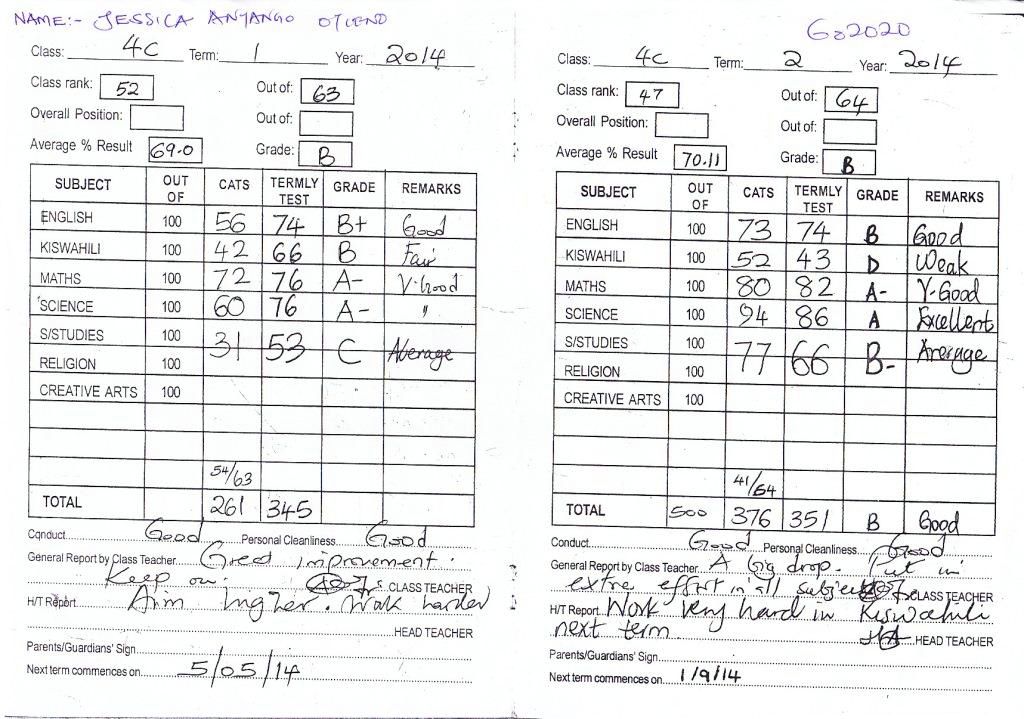 NAME:- JESSICA ANYANGO OTIENO
Class: 4C Term: 1 Year: 2014
Class rank: 52 Out of: 63
Overall Position: Out of:
Average % Result 69.0 Grade: B
SUBJECT OUT OF CATS TERMLY TEST GRADE REMARKS
ENGLISH 100 56 74 B+ Good
KISWAHILI 100 42 66 B Fair
MATHS 100 72 76 A- V.Good
SCIENCE 100 60 76 A- "
S/STUDIES 31 53 C Average
RELIGION 100
CREATIVE ARTS 100
54/63
TOTAL 261 345
Conduct Good Personal Cleanliness Good
General Report by Class Teacher Great improvement.
Keep on. CLASS TEACHER
H/T Report Aim higher. Work harder
HEAD TEACHER
Parents/Guardians' Sign
Next term commences on 5/05/14
Class: 4C Term: 2 Year: 2014
Class rank: 47 Out of: 64
Overall Position: Out of:
Average % Result 70.11 Grade: B
SUBJECT OUT OF CATS TERMLY TEST GRADE REMARKS
ENGLISH 100 73 74 B Good
KISWAHILI 100 52 43 D Weak
MATHS 100 80 82 A- V-Good
SCIENCE 100 94 86 A Excellent
S/STUDIES 77 66 B- Average
RELIGION 100
CREATIVE ARTS 100
41/64
TOTAL 500 376 351 B Good
Conduct Good Personal Cleanliness Good
General Report by Class Teacher A big drop. Put in
extra effort in all subjects CLASS TEACHER
H/T Report Work very hard in Kiswahili
next term HEAD TEACHER
Parents/Guardians' Sign
Next term commences on 1/9/14